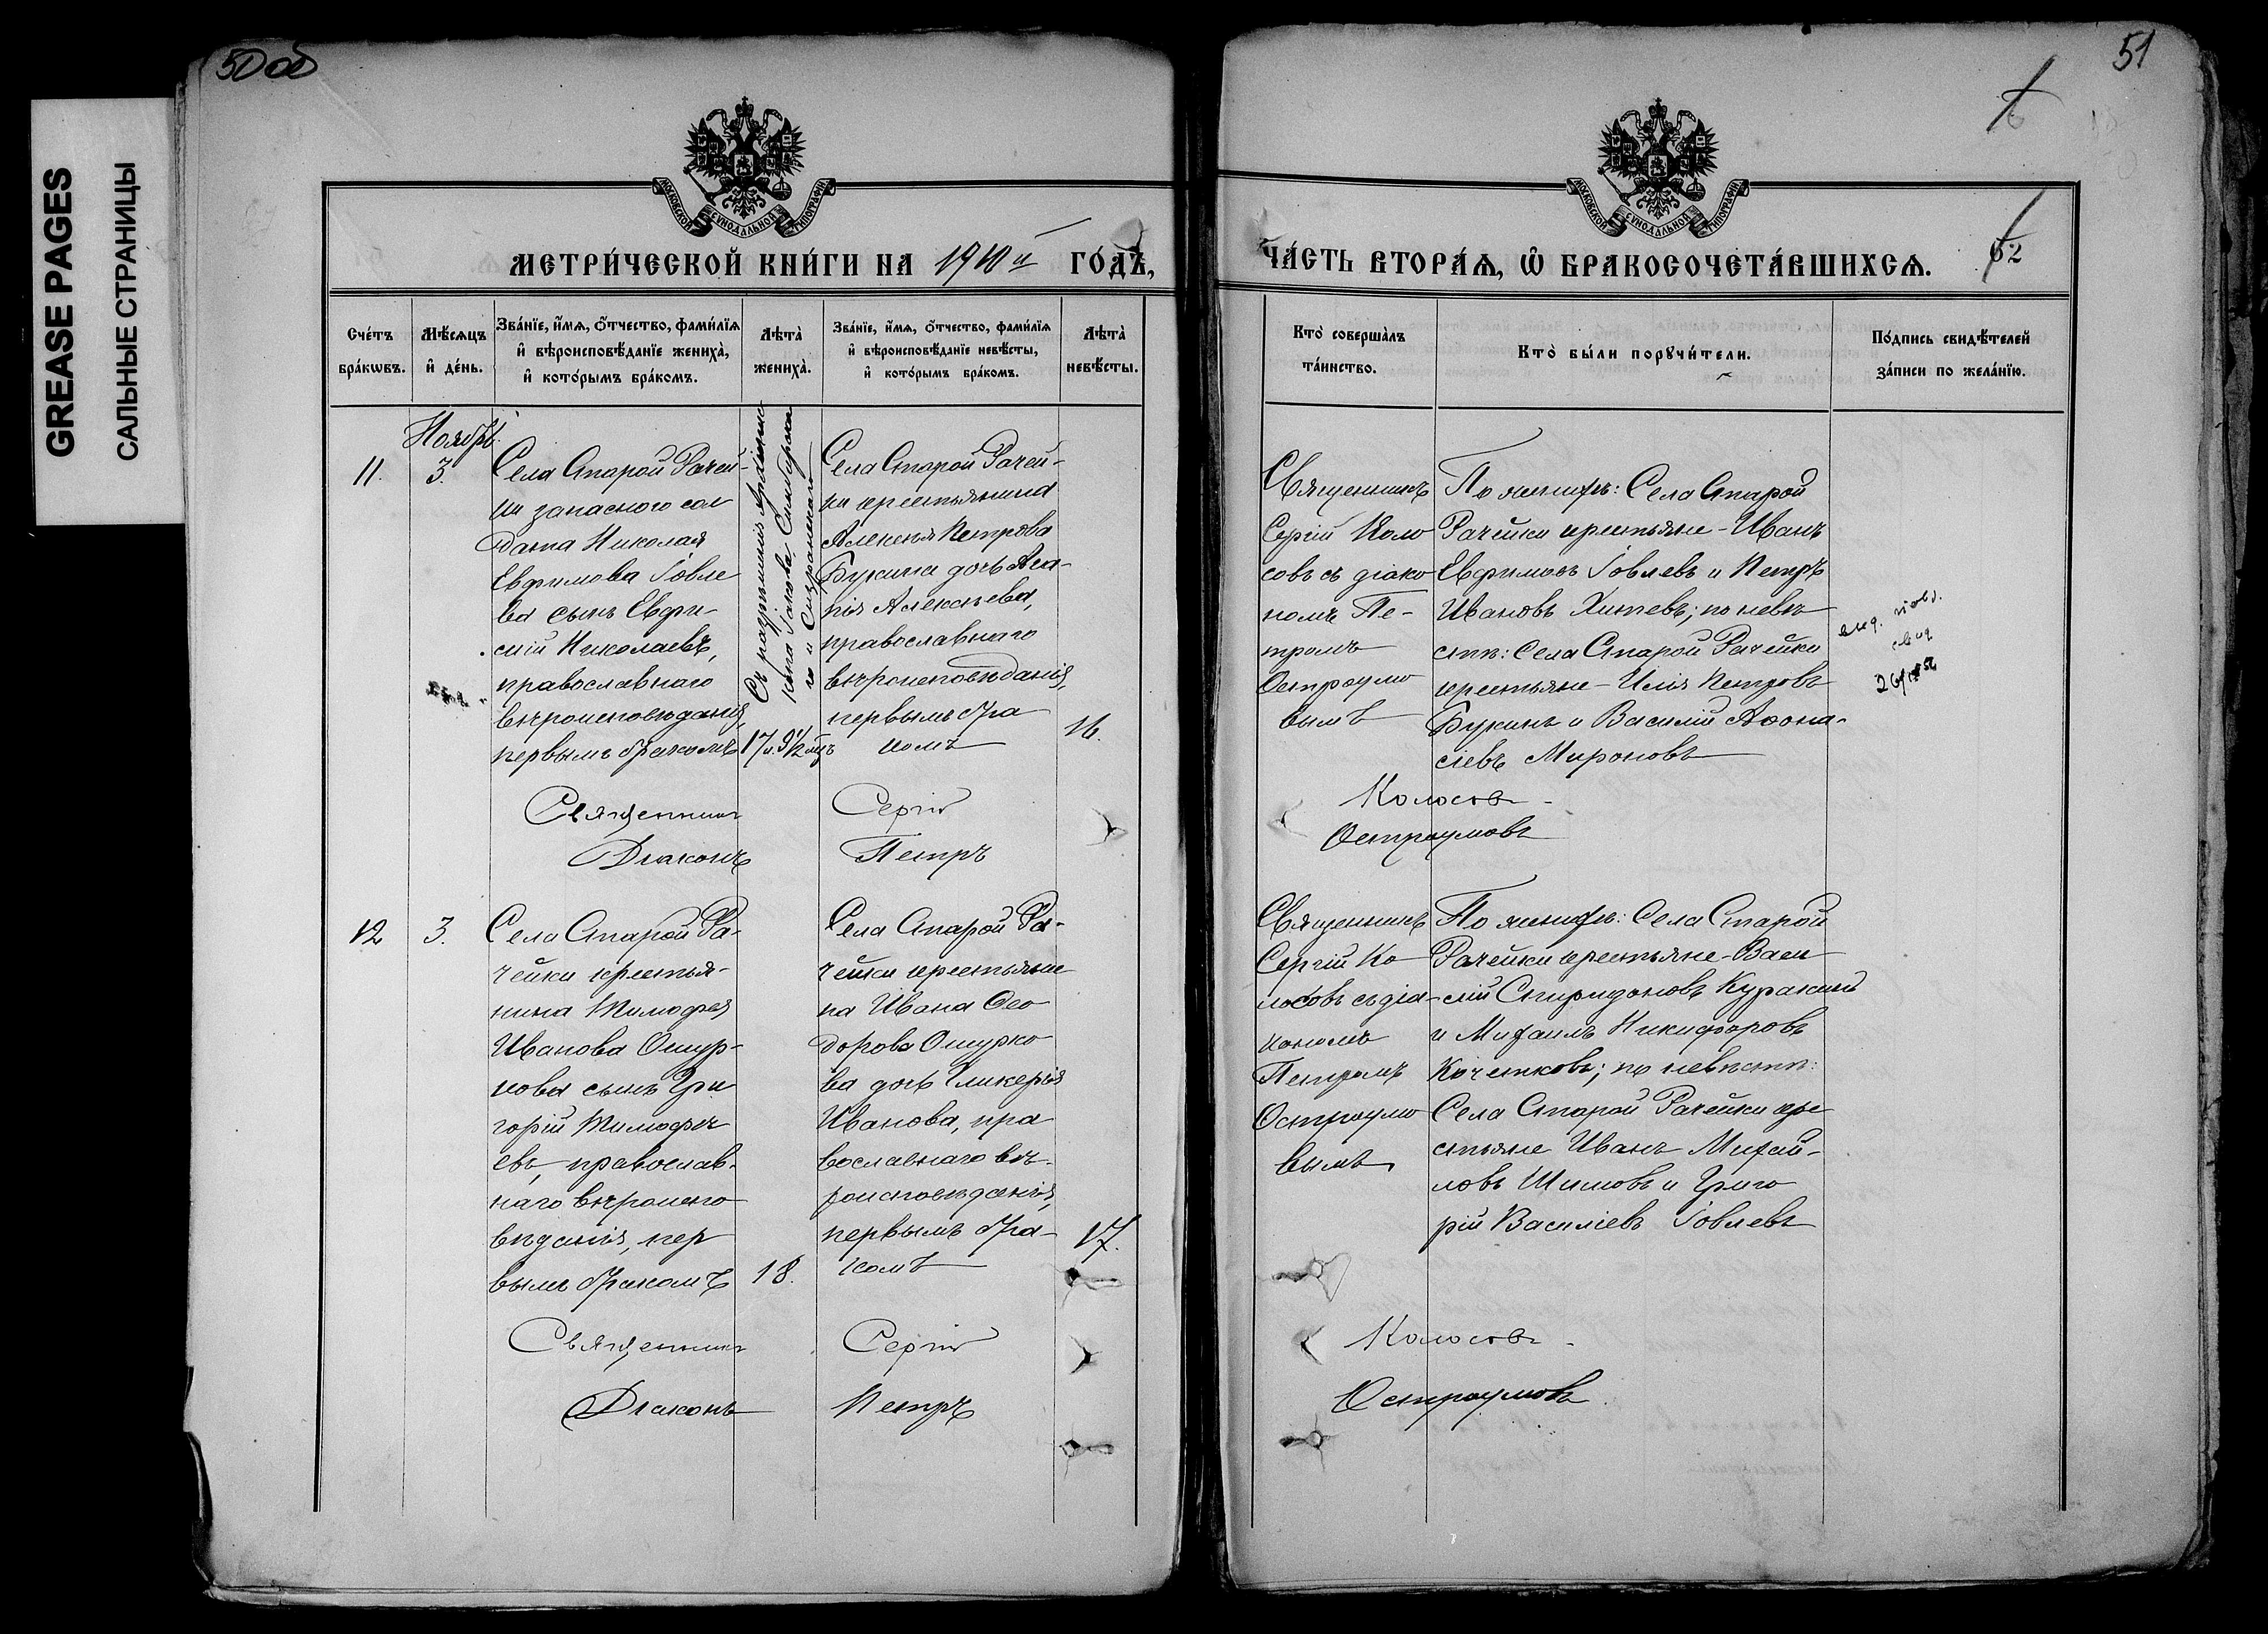 GREASE PAGES
САЛЬНЫЕ СТРАНИЦЫ
50 об
МОСКОВСКОЙ СУНОДАЛЬНОЙ ТИПОГРАФІИ
МЕТРИ́ЧЕСКОЙ КНИ́ГИ НА 1910й ГО́ДЪ,
Сче́тъ бра́кѡвъ.
Мѣ́сѧцъ и҆ де́нь.
Зва́нїе, и҆́мѧ, ѻ҆́тчество, фами́лїѧ
и҆ вѣроисповѣ́данїе жениха̀,
и҆ кото́рымъ бра́комъ.
Лѣта̀
жениха̀.
Зва́нїе, и҆́мѧ, ѻ҆́тчество, фами́лїѧ
и҆ вѣроисповѣ́данїе невѣ́сты,
и҆ кото́рымъ бра́комъ.
Лѣта̀
невѣ́сты.
Ноябрь.
11.
3.
Села Старой Рачей-
ки запасного сол
дата Николая
Евфимова Іовле
ва сынъ Евфи-
мій Николаевъ,
православнаго
вѣроисповѣданія,
первымъ бракомъ
Съ разрѣшенія Архіепис-
копа Іакова Симбирска
го и Сызранскаго
Села Старой Рачей-
ки крестьянина
Алексѣя Петрова
Букина дочь Ага-
пія Алексѣева,
православнаго
вѣроисповѣданія,
первымъ бра
комъ
16.
Священникъ Сергій
Діаконъ Петръ
12
3.
Села Старой Ра-
чейки крестья-
нина Тимофея
Иванова Ошур-
кова сынъ Гри
горій Тимофѣ
евъ, православ-
наго вѣроиспо
вѣданія, пер
вымъ бракомъ
18.
Села Старой Ра-
чейки крестьяни
на Ивана Ѳео
дорова Ошурко
ва дочь Гликерія
Иванова, пра
вославнаго вѣ-
роисповѣданія,
первымъ бра-
комъ
17.
Священникъ Сергій
Діаконъ Петръ
51
МОСКОВСКОЙ СУНОДАЛЬНОЙ ТИПОГРАФІИ
ЧА́СТЬ ВТОРА́Ѧ, Ѡ҆ БРАКОСОЧЕТА́ВШИХСѦ.
62
Кто̀ соверша̀лъ
та́инство.
Кто̀ бы́ли порꙋчи́тели.
По́дпись свидѣ́телей
за́писи по жела́нїю.
Священникъ
Сергій Коло
совъ съ діако
номъ Пе-
тромъ
Остроумо
вымъ
По женихѣ: Села Старой
Рачейки крестьяне - Иванъ
Евфимовъ Іовлевъ и Петръ
Ивановъ Хитевъ; по невѣ
стѣ: Села Старой Рачейки
крестьяне - Илія Петровъ
Букинъ и Василій Аѳона-
сіевъ Мироновъ
Колосовъ
Остроумовъ
Священникъ
Сергій Ко
лосовъ съ діа-
кономъ
Петромъ
Остроумо
вымъ
По женихѣ: Села Старой
Рачейки крестьяне - Васи
лій Спиридоновъ Куракинъ
и Михаилъ Никифоровъ
Кочетковъ; по невѣстѣ:
Села Старой Рачейки кре
стьяне Иванъ Михай-
ловъ Шимовъ и Григо
рій Василіевъ Іовлевъ
Колосовъ
Остроумовъ